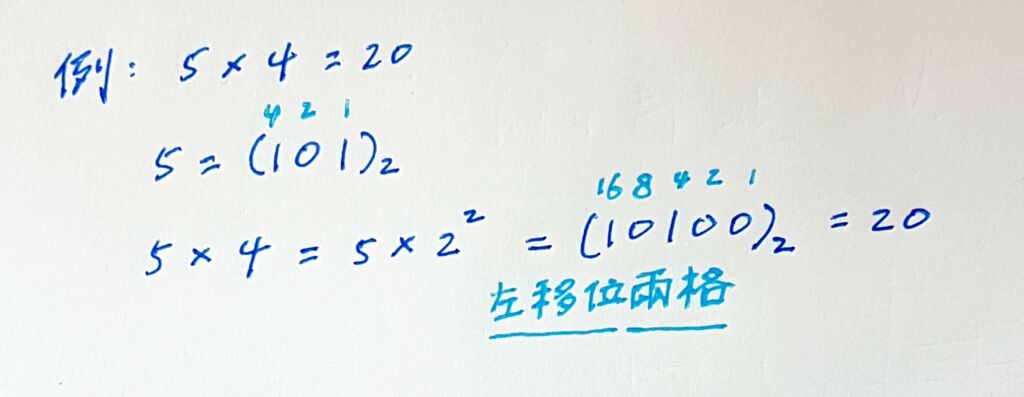 例: 5 × 4 = 20
4 2 1
5 = (101)₂
16 8 4 2 1
5 × 4 = 5 × 2² = (10100)₂ = 20
左移位兩格